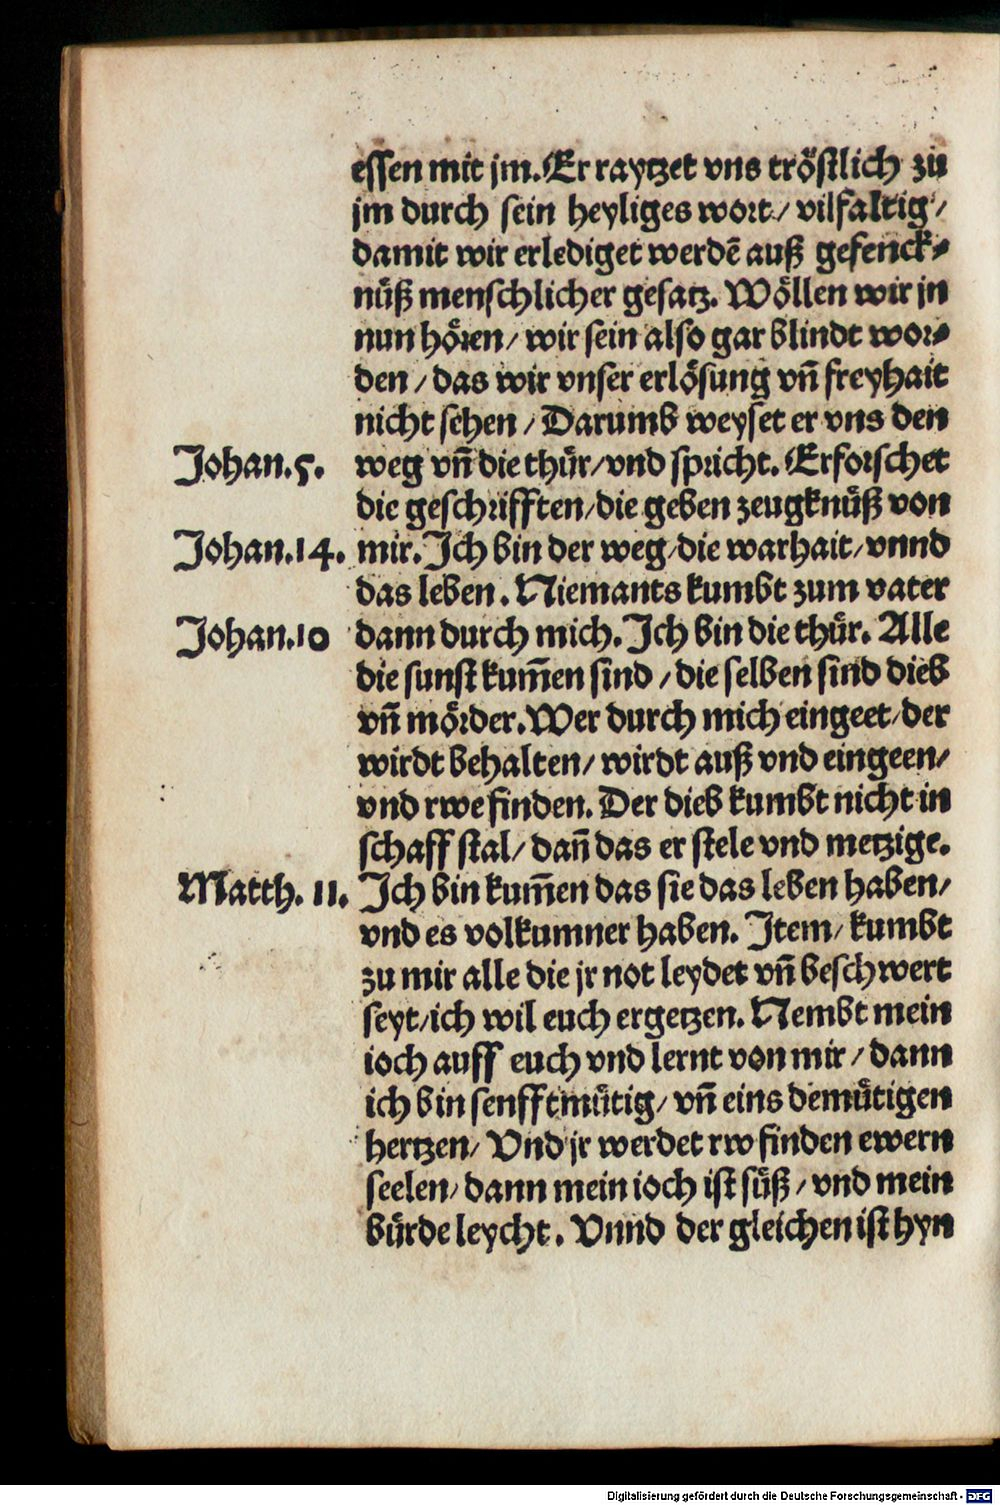 essen mit jm. Er raytzet vns tröstlich zů
jm durch sein heyliges wort / vilfaltig /
damit wir erlediget werdē auß gefenck⸗
nüß menschlicher gesatz. Wöllen wir jn
nun hören / wir sein also gar blindt wor⸗
den / das wir vnser erlösung vñ freyhait
nicht sehen / Darumb weyset er vns den
Johan.5. weg vñ die thür / vnd spricht. Erforschet
die geschrifften / die geben zeugknüß von
Johan.14. mir. Ich bin der weg / die warhait / vnnd
das leben. Niemants kumbt zum vater
Johan.10 dann durch mich. Ich bin die thür. Alle
die sunst kum̄en sind / die selben sind dieb
vñ mörder. Wer durch mich eingeet / der
wirdt behalten / wirdt auß vnd eingeen /
vnd rwe finden. Der dieb kumbt nicht in
schaff stal / dañ das er stele vnd metzige.
Matth. 11. Ich bin kum̄en das sie das leben haben /
vnd es volkumner haben. Item / kumbt
zu mir alle die jr not leydet vñ beschwert
seyt / ich wil euch ergetzen. Nembt mein
ioch auff euch vnd lernt von mir / dann
ich bin senfftmütig / vñ eins demütigen
hertzen / Vnd jr werdet rw finden ewern
seelen / dann mein ioch ist süß / vnd mein
bürde leycht. Vnnd der gleichen ist hyn
Digitalisierung gefördert durch die Deutsche Forschungsgemeinschaft - DFG